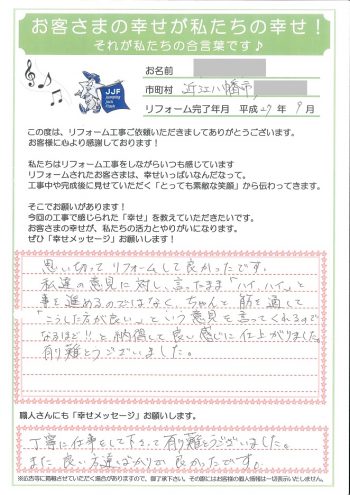 お客さまの幸せが私たちの幸せ！
それが私たちの合言葉です♪
JJF
お名前
市町村 近江八幡市
リフォーム完了年月 平成27年9月
この度は、リフォーム工事ご依頼いただきましてありがとうございます。
お客様に心より感謝しております！
私たちはリフォーム工事をしながらいつも感じています
リフォームされたお客さまは、幸せいっぱいなんだなって。
工事中や完成後に見せていただく「とっても素敵な笑顔」から伝わってきます。
そこでお願いがあります！
今回の工事で感じられた「幸せ」を教えていただきたいです。
お客さまの幸せが、私たちの活力とやりがいになります。
ぜひ「幸せメッセージ」お願いします！
思い切ってリフォームして良かったです。
私達の意見に対し、言ったまま「ハイ、ハイ。」と
事を進めるのではなく、ちゃんと筋を通して
「こうした方が良い。」という意見を言ってくれるので
なるほど!!と納得して良い感じに仕上がりました。
有り難とうございました。
職人さんにも「幸せメッセージ」お願いします。
丁寧に仕事をして下さって有り難とうございました。
また良い方達ばかりで良かったです。
※広告等に掲載させていただく場合がありますので、御了承下さい。その際にはお客様の個人情報は一切表示いたしません。